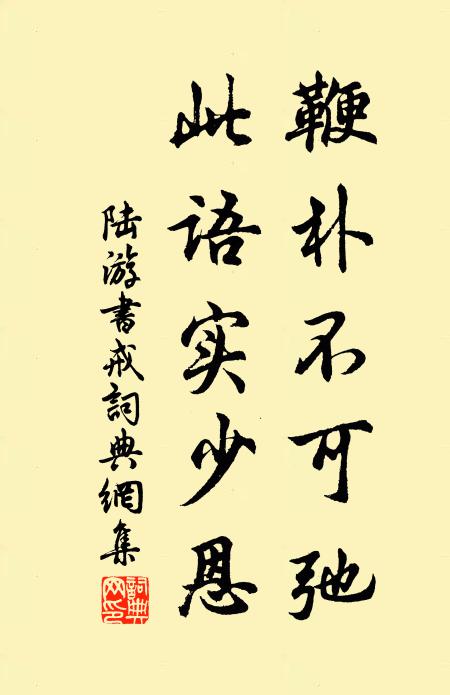 鞭朴不可弛
此语实少恩
陆游书戒詞典網集